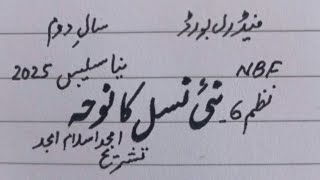 فیڈرل بورڈ سالِ دوم
NBF نیا سلیبس 2025
نظم 6۔ نئی نسل کا نوحہ
امجد اسلام امجد
تشریح